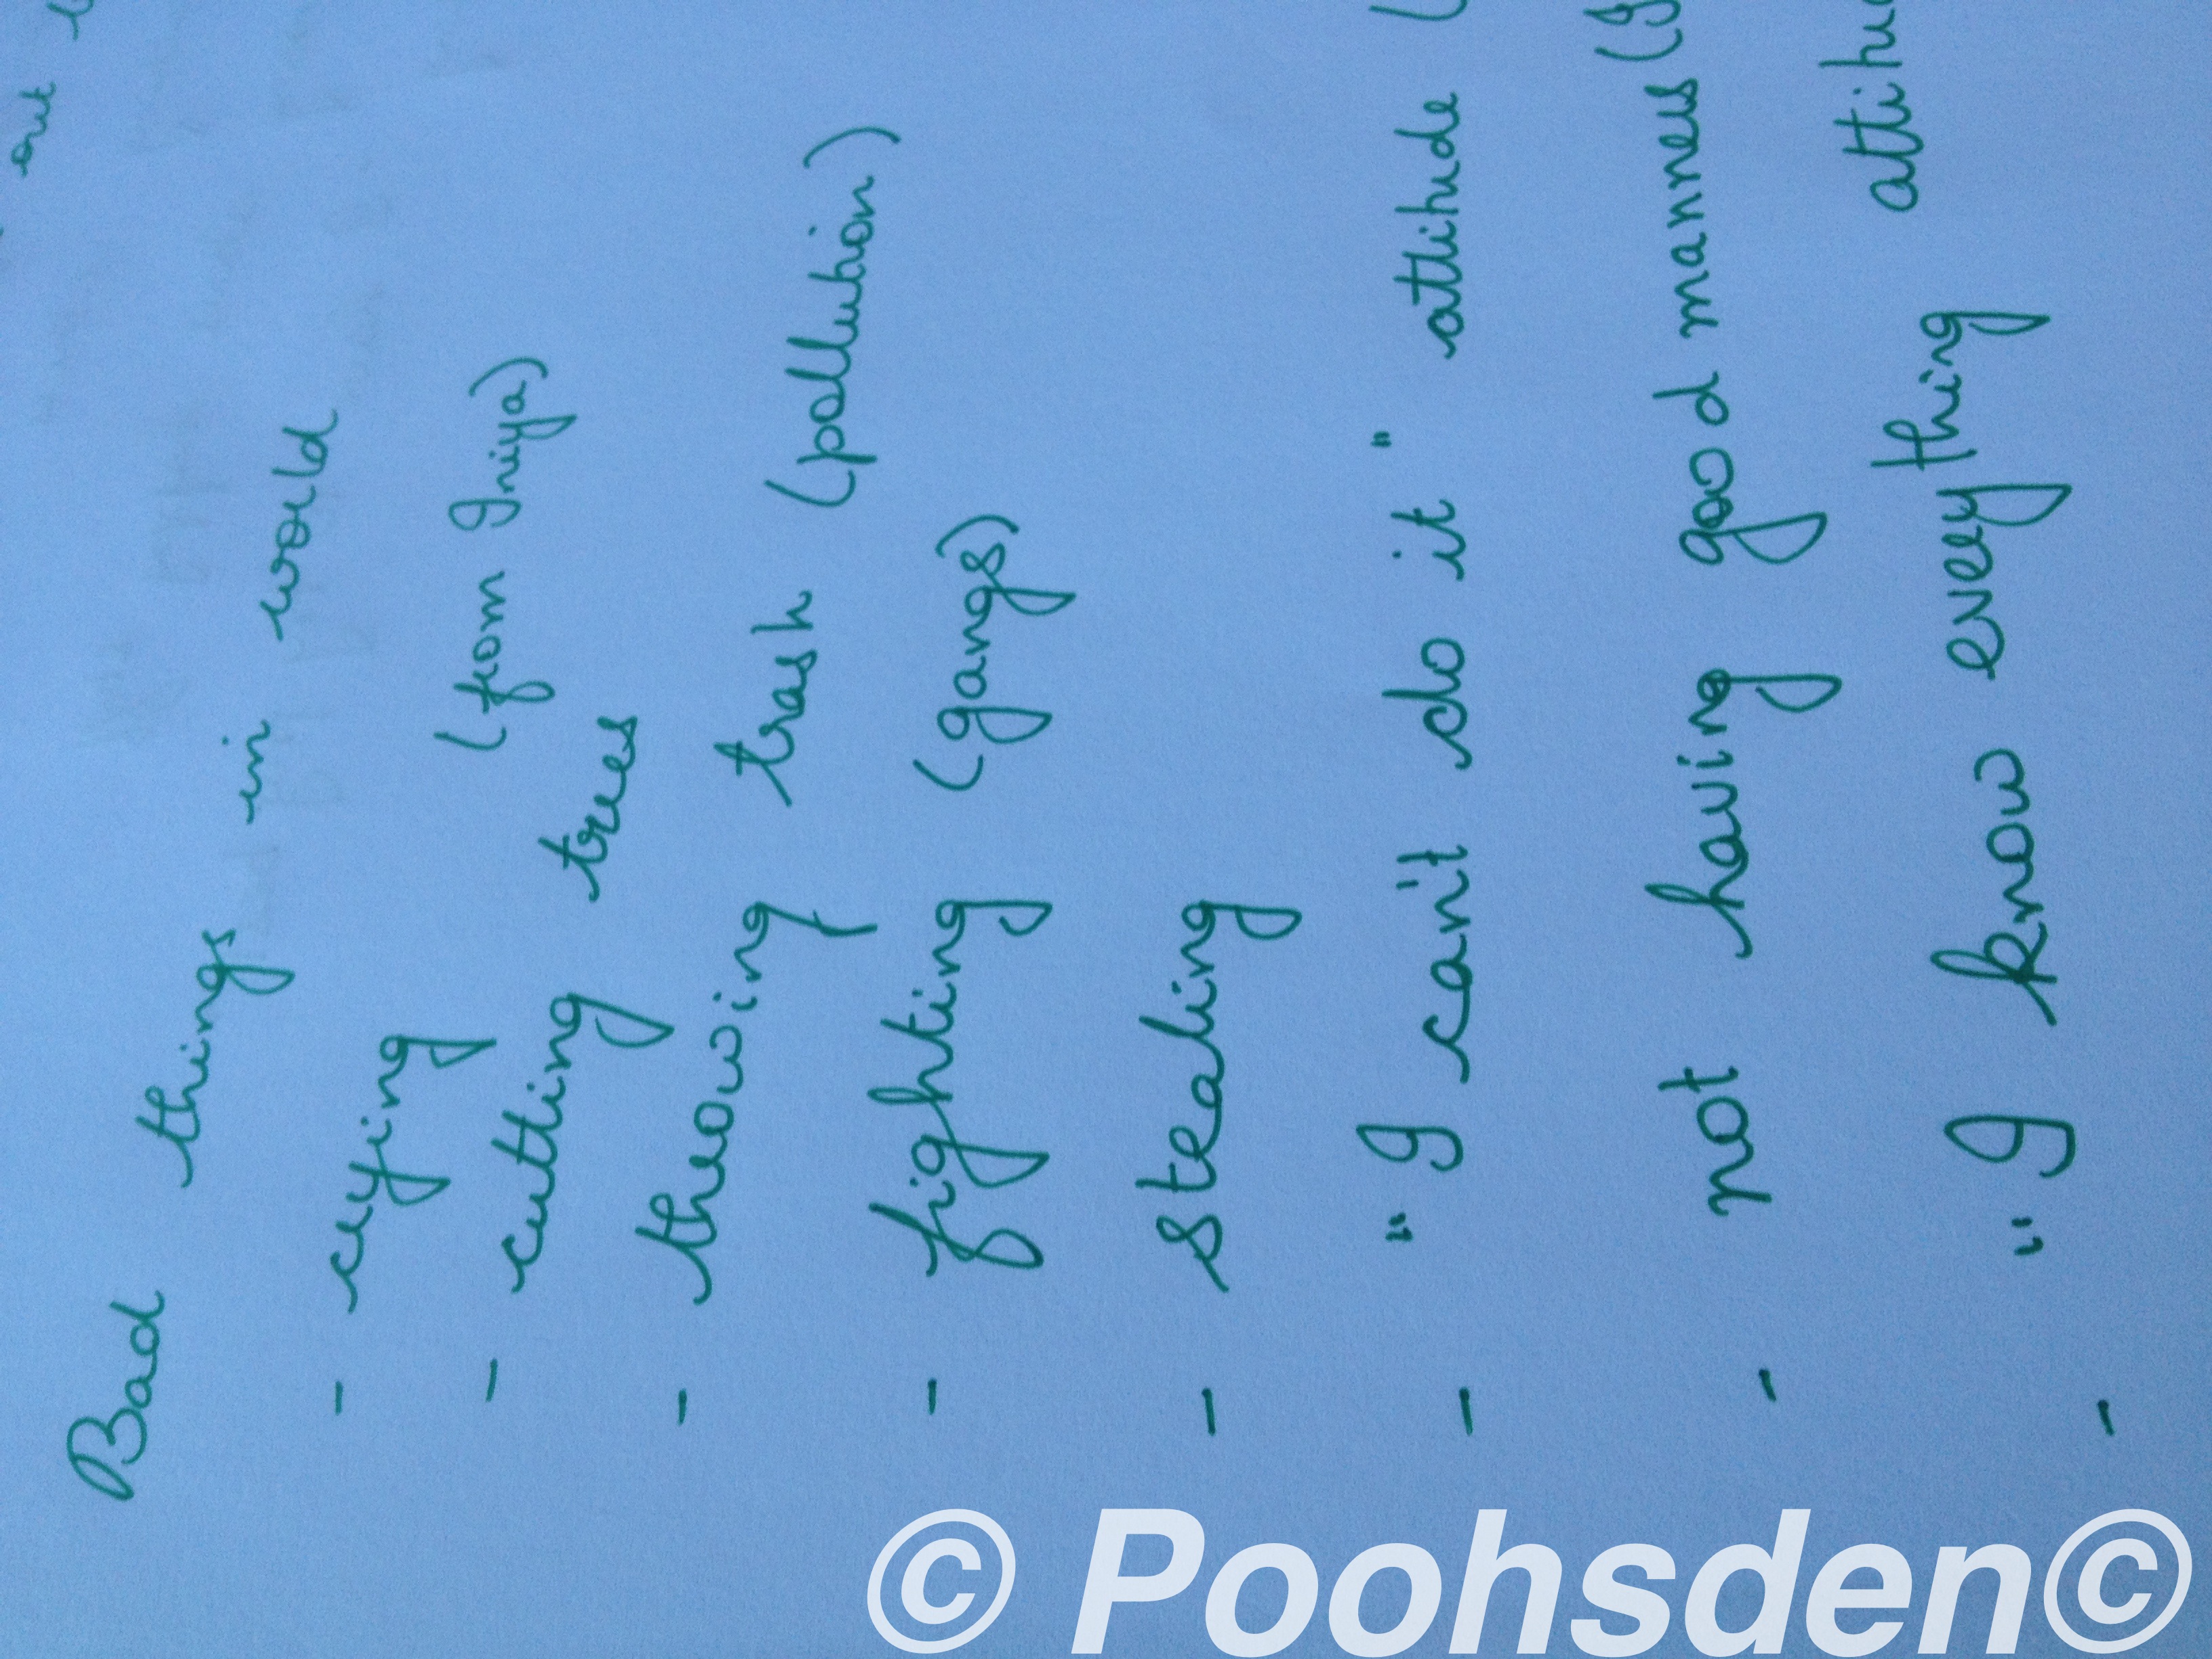 out
Bad things in world
- crying (from Iniya)
- cutting trees
- throwing trash (pollution)
- fighting (gangs)
- stealing
- "I can't do it" attitude (
- not having good manners (
- "I know everything attitu
© Poohsden©